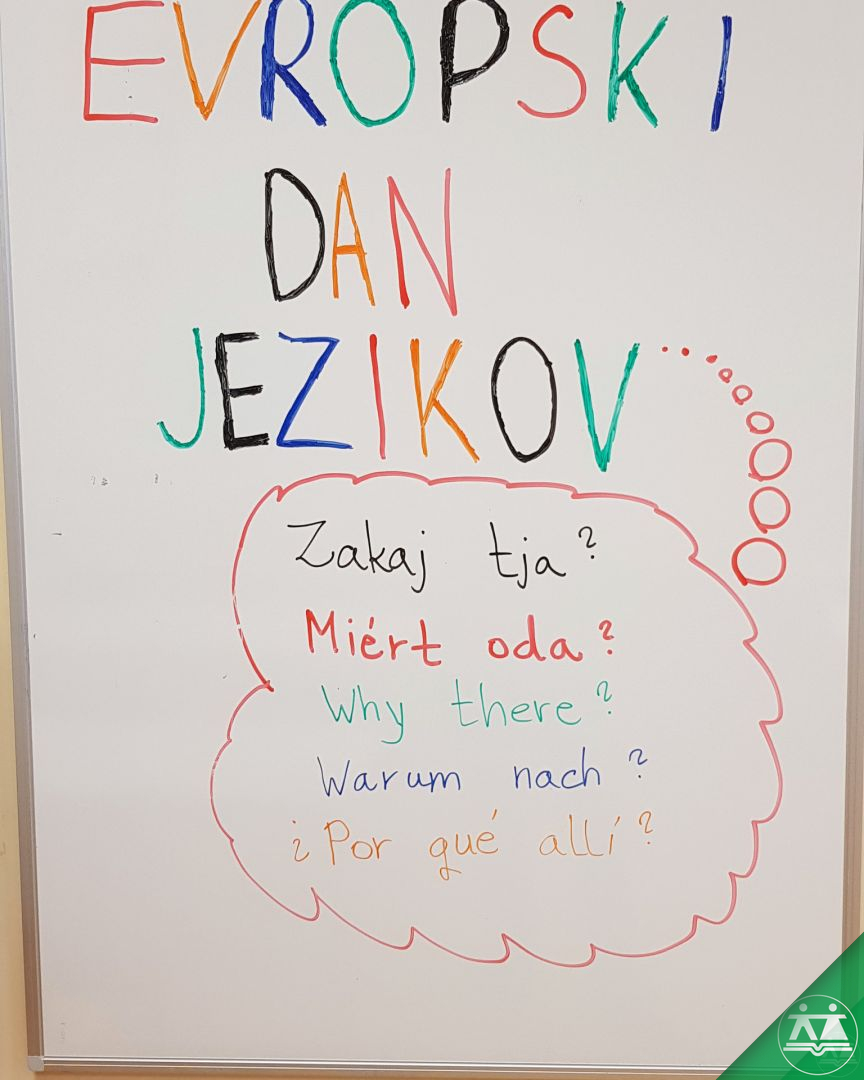 EVROPSKI
DAN
JEZIKOV
Zakaj tja?
Miért oda?
Why there?
Warum nach?
¿Por qué allí?